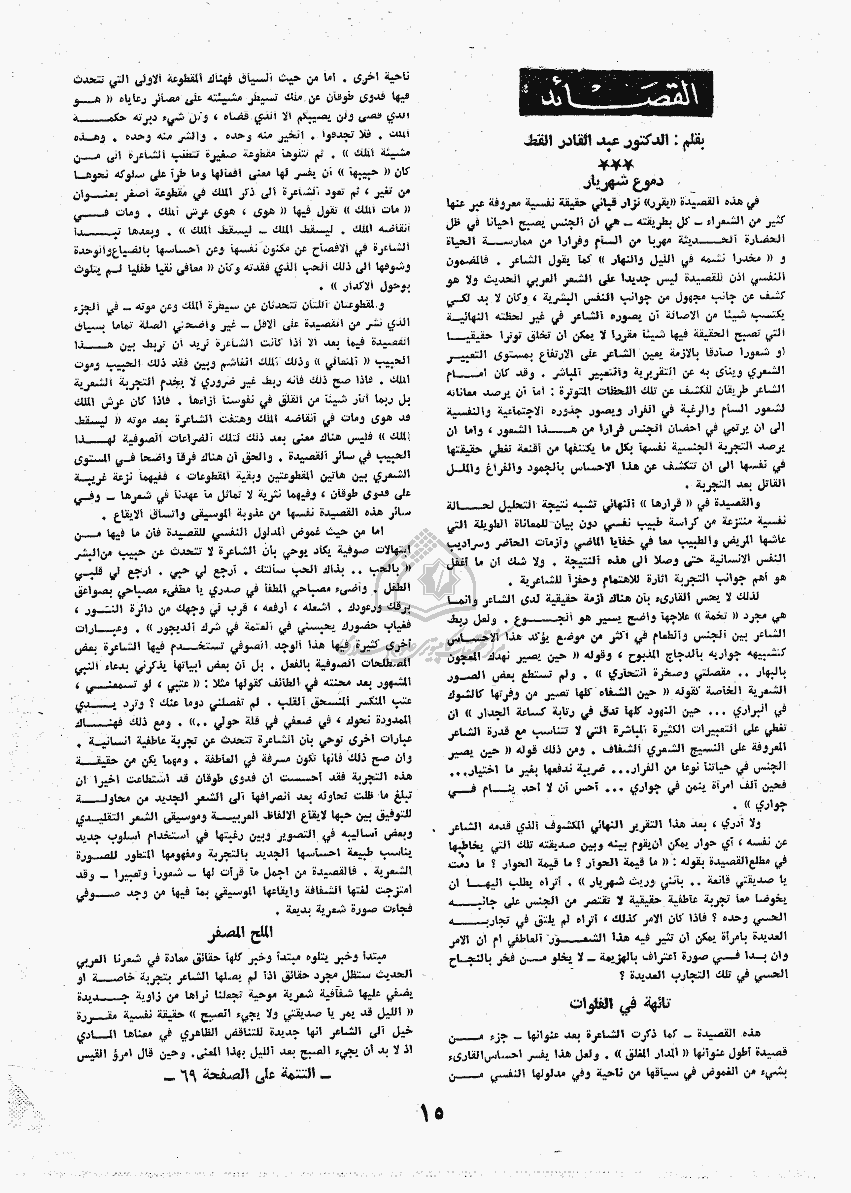 القصائد
بقلم : الدكتور عبد القادر القط
***
دموع شهريار
في هذه القصيدة «يقرر» نزار قباني حقيقة نفسية معروفة عبر عنها
كثير من الشعراء ـ كل بطريقته ـ هي ان الجنس يصبح احيانا في ظل
الحضارة الحديثة مهربا من السأم وفرارا من ممارسة الحياة
و « مخدرا نشمه في الليل والنهار » كما يقول الشاعر . فالمضمون
النفسي اذن للقصيدة ليس جديدا على الشعر العربي الحديث ولا هو
كشف عن جانب مجهول من جوانب النفس البشرية ، وكان لا بد لكي
يكتسب شيئا من الاصالة أن يصوره الشاعر في غير لحظته النهائية
التي تصبح الحقيقة فيها شيئا مقررا لا يمكن ان تخلق توترا حقيقيا
او شعورا صادقا بالازمة يعين الشاعر على الارتفاع بمستوى التعبير
الشعري وينأى به عن التقريرية والتعبير المباشر . وقد كان امام
الشاعر طريقان للكشف عن تلك اللحظات المتوترة : اما أن يرصد معاناته
لشعور السأم والرغبة في الفرار ويصور جذوره الاجتماعية والنفسية
الى ان يرتمي في احضان الجنس فرارا من هذا الشعور ، واما ان
يرصد التجربة الجنسية نفسها بكل ما يكتنفها من أقنعة تغطي حقيقتها
في نفسها الى ان تتكشف عن هذا الاحساس بالجمود والفراغ والملل
القاتل بعد التجربة .
والقصيدة في « قرارها » النهائي تشبه نتيجة التحليل لحالة
نفسية منتزعة من كراسة طبيب نفسي دون بيان للمعاناة الطويلة التي
عاشها المريض والطبيب معا في خفايا الماضي وأزمات الحاضر وسراديب
النفس الانسانية حتى وصلا الى هذه النتيجة . ولا شك أن ما أغفل
هو أهم جوانب التجربة اثارة للاهتمام وحفزا للشاعرية .
لذلك لا يحس القارىء بأن هناك أزمة حقيقية لدى الشاعر وانما
هي مجرد « تخمة » علاجها واضح يسير هو الجوع . ولعل ربط
الشاعر بين الجنس والطعام في اكثر من موضع يؤكد هذا الاحساس
كتشبيهه جواريه بالدجاج المذبوح ، وقوله « حين يصير نهدك المعجون
بالبهار .. مقصلتي وصخرة انتحاري » . ولم تستطع بعض الصور
الشعرية الخاصة كقوله « حين الشفاه كلها تصير من وفرتها كالشوك
في البراري ... حين النهود كلها تدق في رتابة كساعة الجدار » أن
تغطي على التعبيرات الكثيرة المباشرة التي لا تتناسب مع قدرة الشاعر
المعروفة على النسيج الشعري الشفاف . ومن ذلك قوله « حين يصير
الجنس في حياتنا نوعا من الفرار... ضريبة ندفعها بغير ما اختيار...
فحين ألف امرأة ينمن في جواري ... أحس أن لا أحد ينام في
جواري » .
ولا أدري ، بعد هذا التقرير النهائي المكشوف الذي قدمه الشاعر
عن نفسه ، أي حوار يمكن أن يقوم بينه وبين صديقته تلك التي يخاطبها
في مطلع القصيدة بقوله : « ما قيمة الحوار ؟ ما قيمة الحوار ؟ ما دمت
يا صديقتي قانعة .. بأنني وريث شهريار » . أتراه يطلب اليها ان
يخوضا معا تجربة عاطفية حقيقية لا تقتصر من الجنس على جانبه
الحسي وحده ؟ فاذا كان الامر كذلك ، أتراه لم يلتق في تجاربه
العديدة بامرأة يمكن أن تثير فيه هذا الشعور العاطفي ام ان الامر
وان بدا في صورة اعتراف بالهزيمة ـ لا يخلو من فخر بالنجاح
الحسي في تلك التجارب العديدة ؟
تائهة في الفلوات
هذه القصيدة ـ كما ذكرت الشاعرة بعد عنوانها ـ جزء من
قصيدة أطول عنوانها « المدار المغلق » . ولعل هذا يفسر احساس القارىء
بشيء من الغموض في سياقها من ناحية وفي مدلولها النفسي من
ناحية اخرى . اما من حيث السياق فهناك المقطوعة الاولى التي تتحدث
فيها فدوى طوقان عن ملك تسيطر مشيئته على مصائر رعاياه « هو
الذي قضى ولن يصيبكم الا الذي قضاه ، وكل شيء دبرته حكمة
الملك . فلا تجدفوا . الخير منه وحده . والشر منه وحده . وهذه
مشيئة الملك » . ثم تتلوها مقطوعة صغيرة تتطلب الشاعرة الى من
كان « حبيبها » أن يفسر لها معنى افعالها وما طرأ على سلوكه نحوها
من تغير ، ثم تعود الشاعرة الى ذكر الملك في مقطوعة اصغر بعنوان
« مات الملك » تقول فيها « هوى ، هوى عرش الملك . ومات في
أنقاضه الملك . ليسقط الملك ـ ليسقط الملك » . وبعدها تبدأ
الشاعرة في الافصاح عن مكنون نفسها وعن احساسها بالضياع والوحدة
وشوقها الى ذلك الحب الذي فقدته وكان « معافى نقيا طفليا لم يتلوث
بوحول الاكدار » .
والمقطوعتان اللتان تتحدثان عن سيطرة الملك وعن موته ـ في الجزء
الذي نشر من القصيدة على الاقل ـ غير واضحتي الصلة تماما بسياق
القصيدة فيما بعد الا اذا كانت الشاعرة تريد ان تربط بين هذا
الحبيب « المتعالي » وذلك الملك الغاشم وبين فقد ذلك الحبيب وموت
الملك . فاذا صح ذلك فأنه ربط غير ضروري لا يخدم التجربة الشعرية
بل ربما أثار شيئا من القلق في نفوسنا ازاءها . فاذا كان عرش الملك
قد هوى ومات في أنقاضه الملك وهتفت الشاعرة بعد موته « ليسقط
الملك » فليس هناك معنى بعد ذلك لتلك الضراعات الصوفية لهذا
الحبيب في سائر القصيدة . والحق أن هناك فرقا واضحا في المستوى
الشعري بين هاتين المقطوعتين وبقية المقطوعات ، ففيهما نزعة غريبة
على فدوى طوقان ، وفيهما نثرية لا تماثل ما عهدنا في شعرها ـ وفي
سائر هذه القصيدة نفسها من عذوبة الموسيقى واتساق الايقاع .
اما من حيث غموض المدلول النفسي للقصيدة فأن ما فيها من
ابتهالات صوفية يكاد يوحي بأن الشاعرة لا تتحدث عن حبيب من البشر
« بالحب .. بذاك الحب سألتك . أرجع لي حبي . ارجع لي قلبي
الطفل . وأضىء مصباحي المطفأ في صدري يا مطفىء مصباحي بصواعق
برقك ورعودك . اشعله ، أرفعه ، قرب لي وجهك من دائرة النور ،
فغياب حضورك يحبسني في العتمة في شرك الديجور » . وعبارات
أخرى كثيرة فيها هذا الوجد الصوفي تستخدم فيها الشاعرة بعض
المصطلحات الصوفية بالفعل . بل أن بعض ابياتها يذكرني بدعاء النبي
المشهور بعد محنته في الطائف كقولها مثلا : « عتبي ، لو تسمعني ،
عتب المنكسر المنسحق القلب . لم تفصلني دوما عنك ؟ وترد يدي
الممدودة نحوك ، في ضعفي في قلة حولي ..» . ومع ذلك فهناك
عبارات اخرى توحي بأن الشاعرة تتحدث عن تجربة عاطفية انسانية .
وان صح ذلك فأنها تكون مسرفة في العاطفة . ومهما يكن من حقيقة
هذه التجربة فقد أحسست ان فدوى طوقان قد استطاعت اخيرا ان
تبلغ ما ظلت تحاوله بعد انصرافها الى الشعر الجديد من محاولة
للتوفيق بين حبها لايقاع الالفاظ العربية وموسيقى الشعر التقليدي
وبعض أساليبه في التصوير وبين رغبتها في استخدام أسلوب جديد
يناسب طبيعة احساسها الجديد بالتجربة ومفهومها المتطور للصورة
الشعرية . فالقصيدة من اجمل ما قرأت لها ـ شعورا وتعبيرا ـ وقد
امتزجت لغتها الشفافة وايقاعها الموسيقي بما فيها من وجد صوفي
فجاءت صورة شعرية بديعة .
الملح المصفر
مبتدأ وخبر يتلوه مبتدأ وخبر كلها حقائق معادة في شعرنا العربي
الحديث ستظل مجرد حقائق اذا لم يصلها الشاعر بتجربة خاصة او
يضفي عليها شفافية شعرية موحية تجعلنا نراها من زاوية جديدة
« الليل قد يمر يا صديقتي ولا يجيء الصبح » حقيقة نفسية مقررة
خيل الى الشاعر انها جديدة للتناقض الظاهري في معناها المادي
اذ لا بد أن يجيء الصبح بعد الليل بهذا المعنى. وحين قال امرؤ القيس
ـ التتمة على الصفحة ٦٩ ـ
١٥